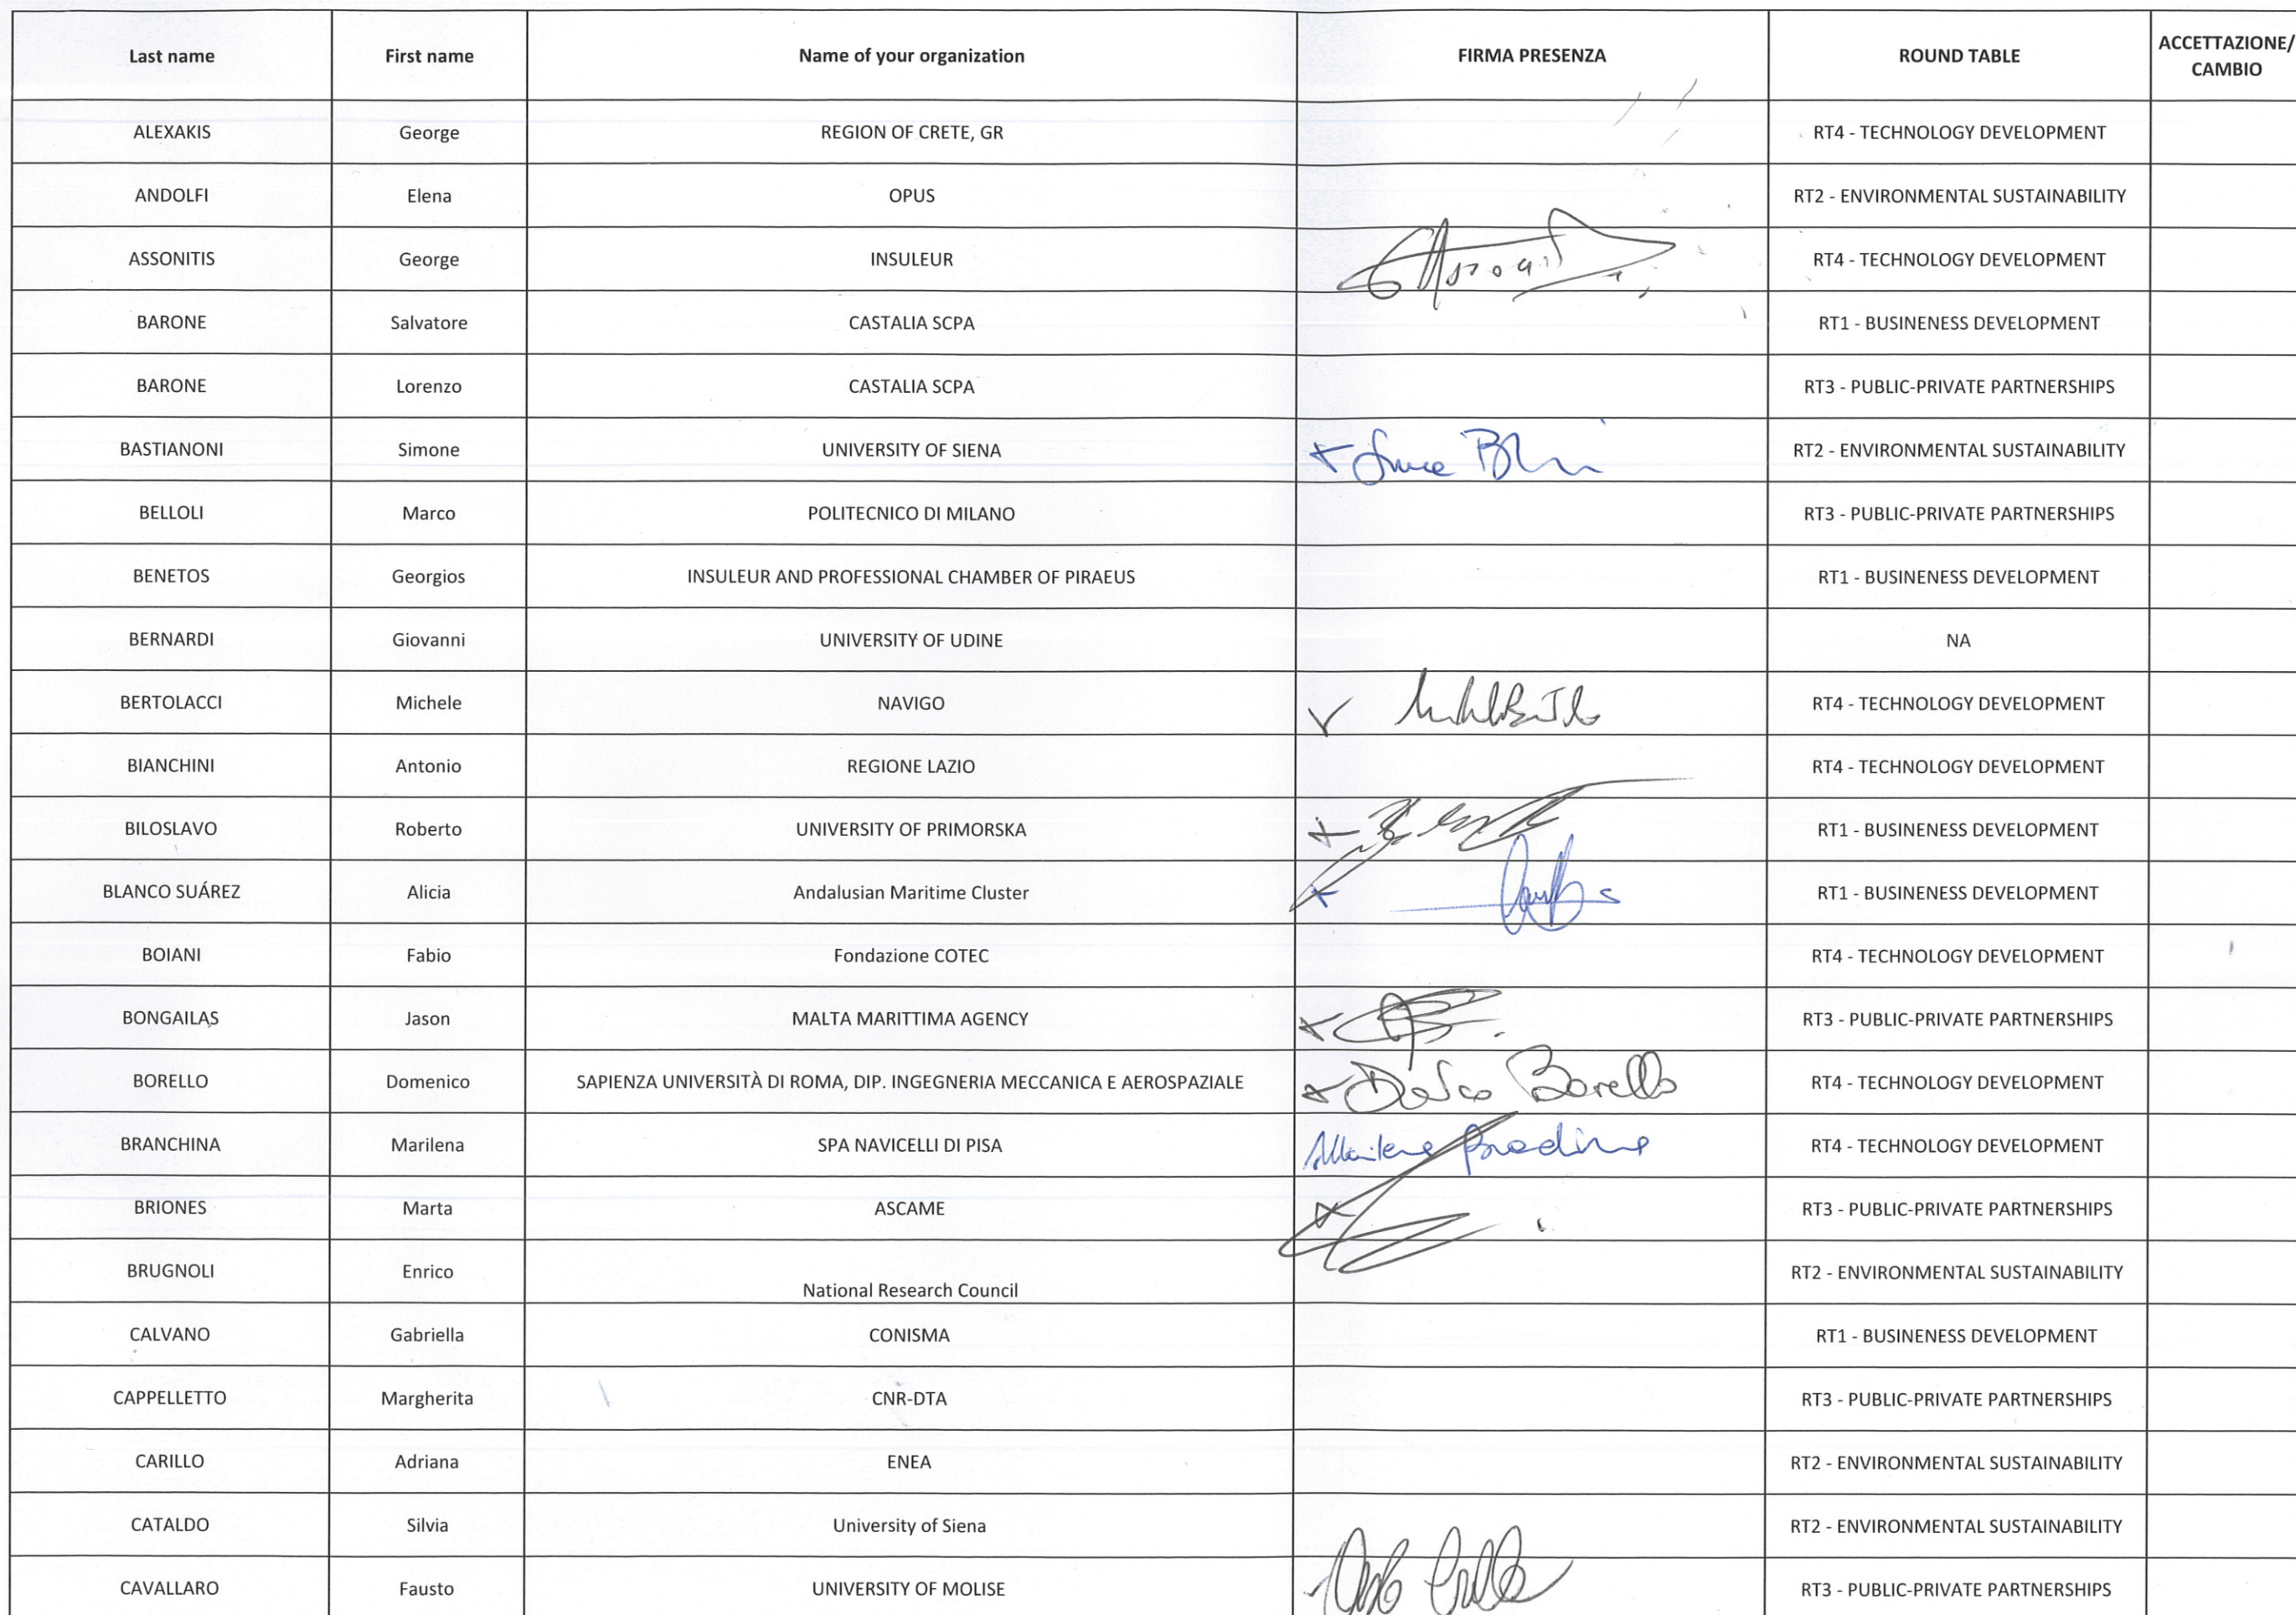 Last name First name Name of your organization FIRMA PRESENZA ROUND TABLE ACCETTAZIONE/
CAMBIO
ALEXAKIS George REGION OF CRETE, GR RT4 - TECHNOLOGY DEVELOPMENT
ANDOLFI Elena OPUS RT2 - ENVIRONMENTAL SUSTAINABILITY
ASSONITIS George INSULEUR RT4 - TECHNOLOGY DEVELOPMENT
BARONE Salvatore CASTALIA SCPA RT1 - BUSINENESS DEVELOPMENT
BARONE Lorenzo CASTALIA SCPA RT3 - PUBLIC-PRIVATE PARTNERSHIPS
BASTIANONI Simone UNIVERSITY OF SIENA RT2 - ENVIRONMENTAL SUSTAINABILITY
BELLOLI Marco POLITECNICO DI MILANO RT3 - PUBLIC-PRIVATE PARTNERSHIPS
BENETOS Georgios INSULEUR AND PROFESSIONAL CHAMBER OF PIRAEUS RT1 - BUSINENESS DEVELOPMENT
BERNARDI Giovanni UNIVERSITY OF UDINE NA
BERTOLACCI Michele NAVIGO RT4 - TECHNOLOGY DEVELOPMENT
BIANCHINI Antonio REGIONE LAZIO RT4 - TECHNOLOGY DEVELOPMENT
BILOSLAVO Roberto UNIVERSITY OF PRIMORSKA RT1 - BUSINENESS DEVELOPMENT
BLANCO SUÁREZ Alicia Andalusian Maritime Cluster RT1 - BUSINENESS DEVELOPMENT
BOIANI Fabio Fondazione COTEC RT4 - TECHNOLOGY DEVELOPMENT
BONGAILAS Jason MALTA MARITTIMA AGENCY RT3 - PUBLIC-PRIVATE PARTNERSHIPS
BORELLO Domenico SAPIENZA UNIVERSITÀ DI ROMA, DIP. INGEGNERIA MECCANICA E AEROSPAZIALE Borello RT4 - TECHNOLOGY DEVELOPMENT
BRANCHINA Marilena SPA NAVICELLI DI PISA RT4 - TECHNOLOGY DEVELOPMENT
BRIONES Marta ASCAME RT3 - PUBLIC-PRIVATE PARTNERSHIPS
BRUGNOLI Enrico National Research Council RT2 - ENVIRONMENTAL SUSTAINABILITY
CALVANO Gabriella CONISMA RT1 - BUSINENESS DEVELOPMENT
CAPPELLETTO Margherita CNR-DTA RT3 - PUBLIC-PRIVATE PARTNERSHIPS
CARILLO Adriana ENEA RT2 - ENVIRONMENTAL SUSTAINABILITY
CATALDO Silvia University of Siena RT2 - ENVIRONMENTAL SUSTAINABILITY
CAVALLARO Fausto UNIVERSITY OF MOLISE RT3 - PUBLIC-PRIVATE PARTNERSHIPS